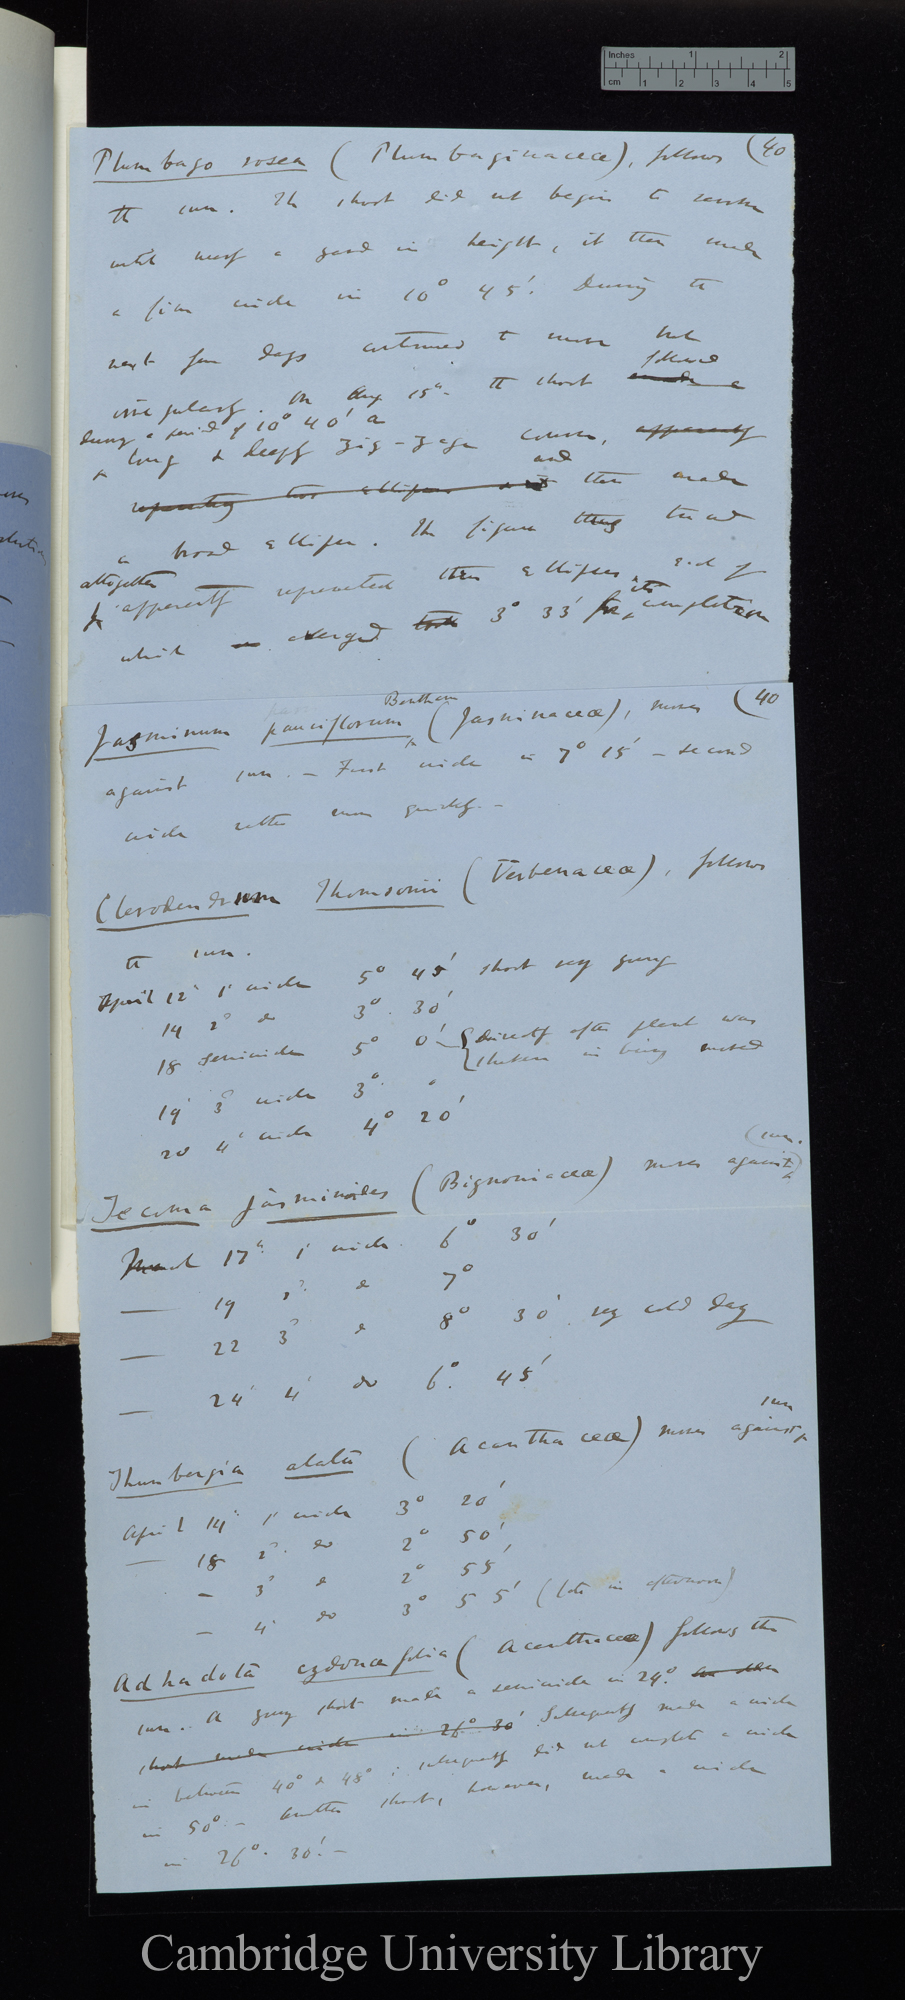 Inches 1 2
cm 1 2 3 4 5
Plumbago rosea (Plumbaginaceæ), follows (40
the sun. The shoot did not begin to revolve
until nearly a yard in height, it then made
a fine circle in 10° 45'. During the
next few days continued to move but
irregularly. On Aug 15th. the shoot followed made a
during a period of 10° 40' a
& long & deeply zig-zage course, apparently
representing two ellipses and and then made
a broad ellipse. The figure thus traced
altogether
& apparently represented three ellipses, each of
which averged took 3° 33' for its completion
Jasminum pauciflorum Bentham (Jasminaceæ), moves (40
against sun. — First circle in 7° 15' — second
circle rather more quickly. —
Clerodendrum Thomsonii (Verbenaceæ), follows
the sun.
April 12 1' circle 5° 45' shoot very young
14 2° do 3°. 30'
18 semicircle 5° 0' — {directly after plant was
{shaken in being moved
19 3° circle 3°.
20 4' circle 4° 20'
Tecoma jasminoides (Bignoniaceæ) moves against sun.
March 17th. 1' circle. 6° 30'
— 19 2° do 7°
— 22 3° do 8° 30' very cold day
— 24 4' do 6°. 45'
Thunbergia alata (Acanthaceæ) moves against sun
April 14 1' circle 3° 20'
— 18 2°. do 2° 50'
— 3° do 2° 55'
— 4' do 3° 55' (late in afternoon)
Adhadota cydonæfolia (Acanthaceæ) follows the
sun. A young shoot made a semicircle in 24°.
shoot made circle in 26° 30' Subsequently made a circle
in between 40° & 48°; subsequently did not complete a circle
in 50°. — Another shoot, however, made a circle
in 26°. 30'. —
Cambridge University Library